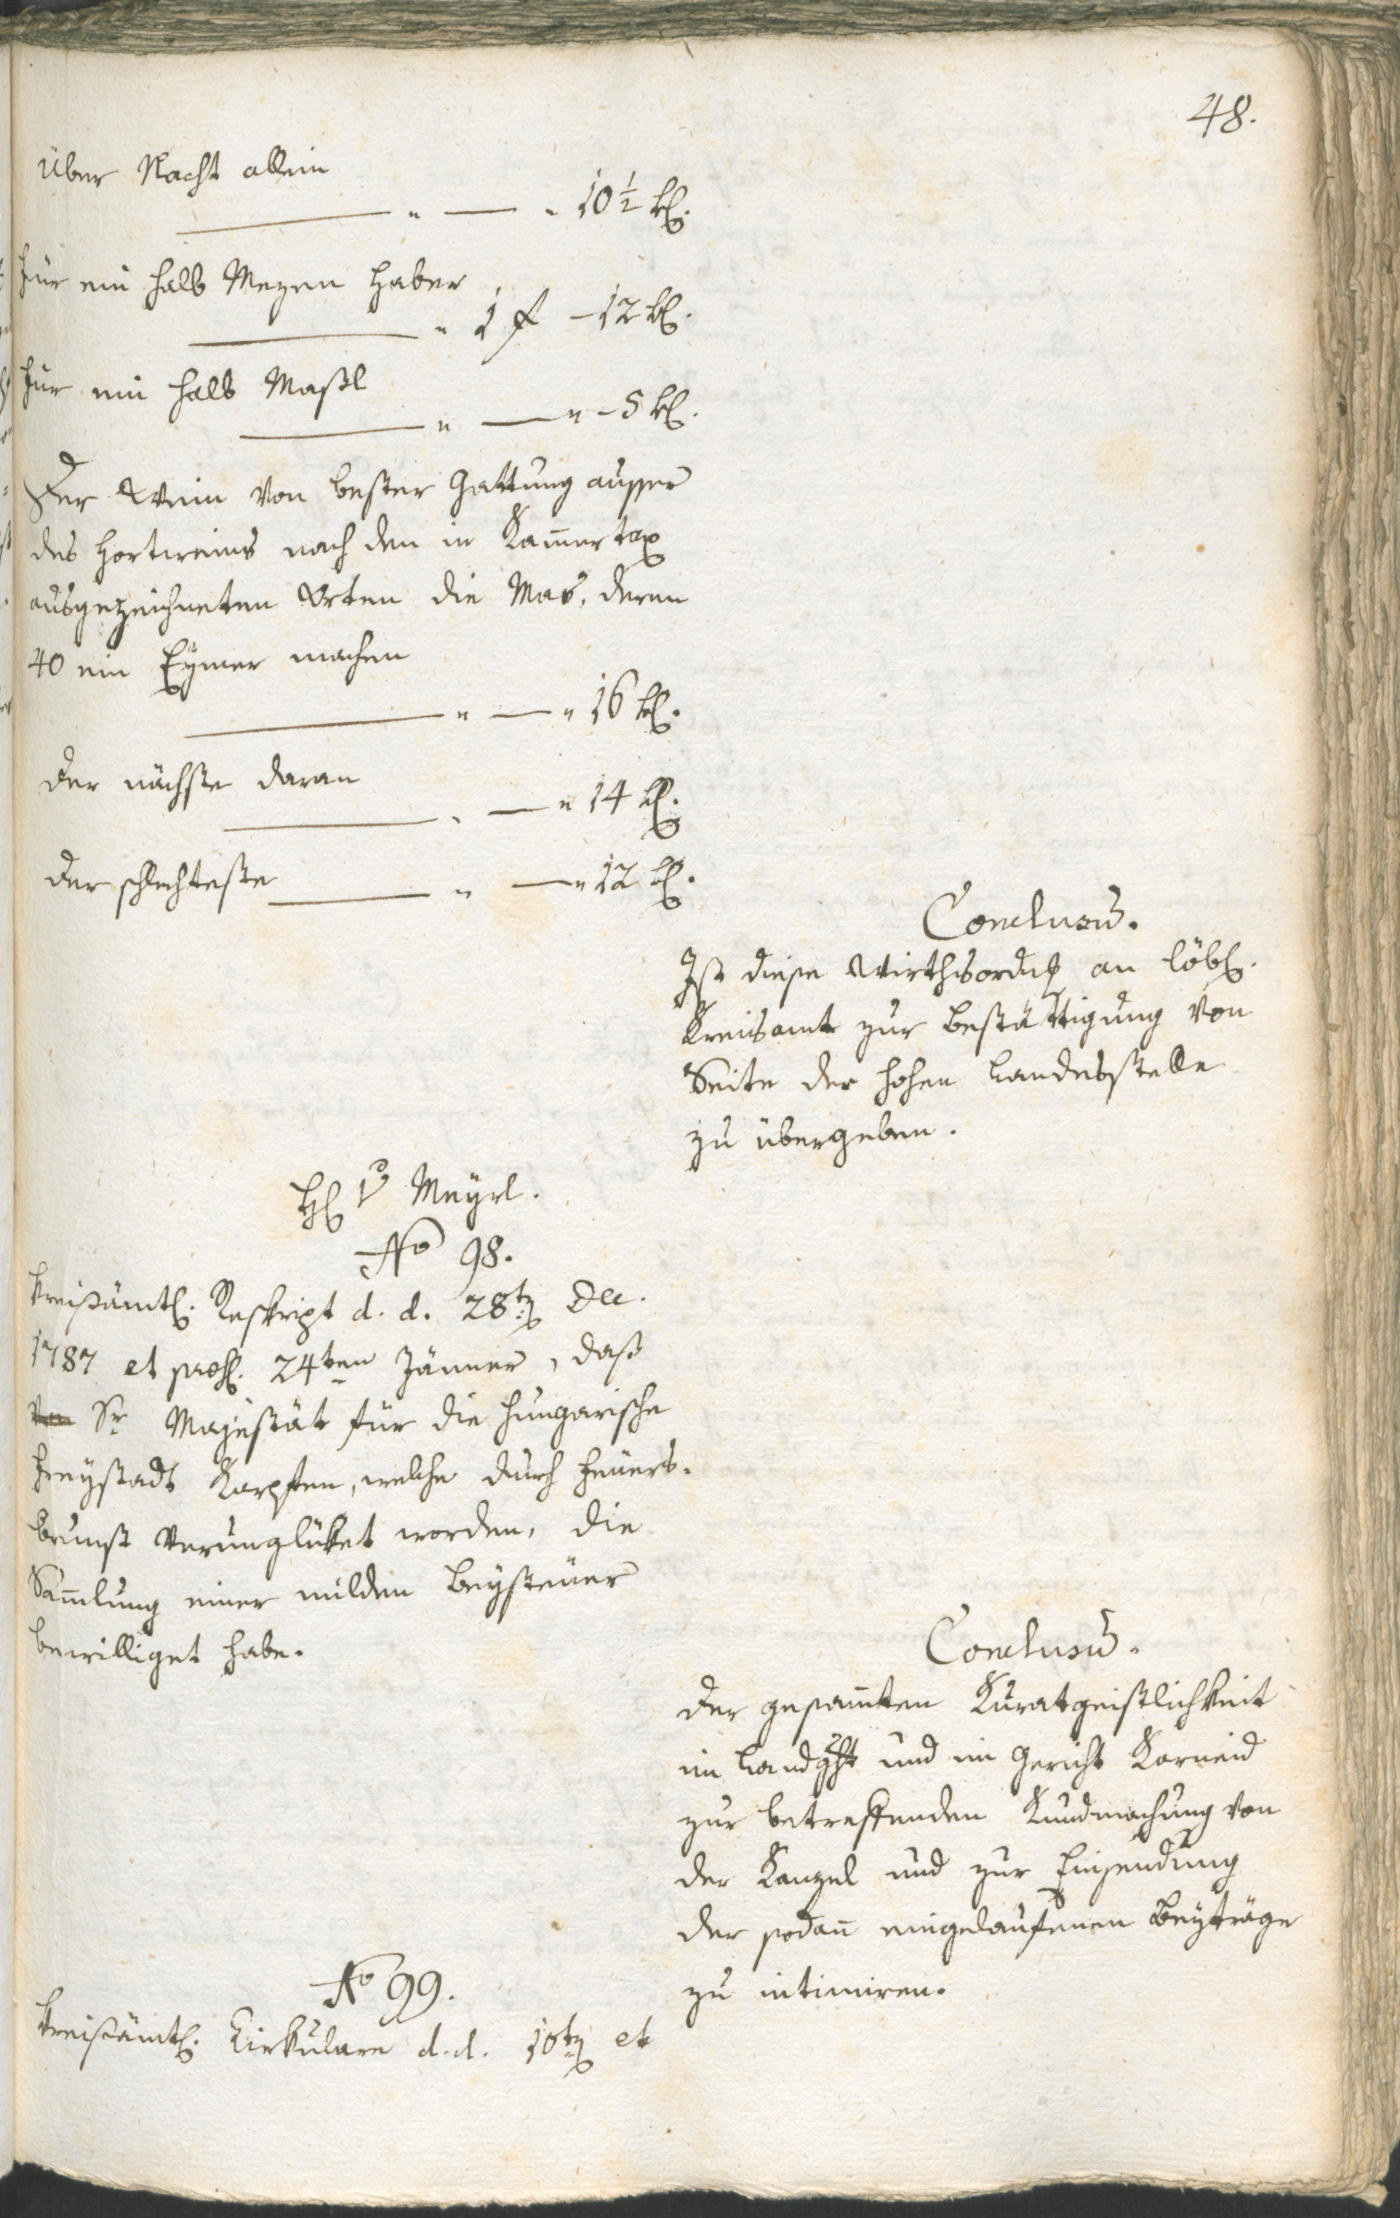 48.
Über Nacht allein
" — " 10 1/2 kr.
Für ein halb Mezen Haber
" 1 f — 12 kr.
Für ein halb Maßl
" — " — 5 kr.
Der Wein von bester Gattung ausser
des Hortweins nach den in Kam̄ertax
ausgezeichneten Orten die Mas, deren
40 ein Eymer machen
" — " 16 kr.
Der nächste daran
" — " 14 kr.
Der schlechteste " — " 12 kr.
Conclusum̄.
Ist diese Wirthsordng an löbl.
Kreisamt zur Bestättigung von
Seite der hohen Landesstelle
zu übergeben.
H. v Mayrl.
No 98.
Kreißämtl. Reskript d. d. 28tn Dec.
1787 et praes. 24ten Jänner, daß
von Sr Majestät für die hungarische
Freystadt Karpfen, welche durch Feuers-
brunst verunglüket worden, die
Sam̄lung einer milden Beysteuer
bewilliget habe.
Conclusum̄.
Der gesam̄ten Kuratgeistlichkeit
im Landght und im Gericht Karneid
zur betreffenden Kundmachung von
der Kanzel und zur Einsendung
der sodan̄ eingelaufenen Beyträge
zu intimiren.
No 99.
Kreißämtl. Cirkulare d. d. 10tn et